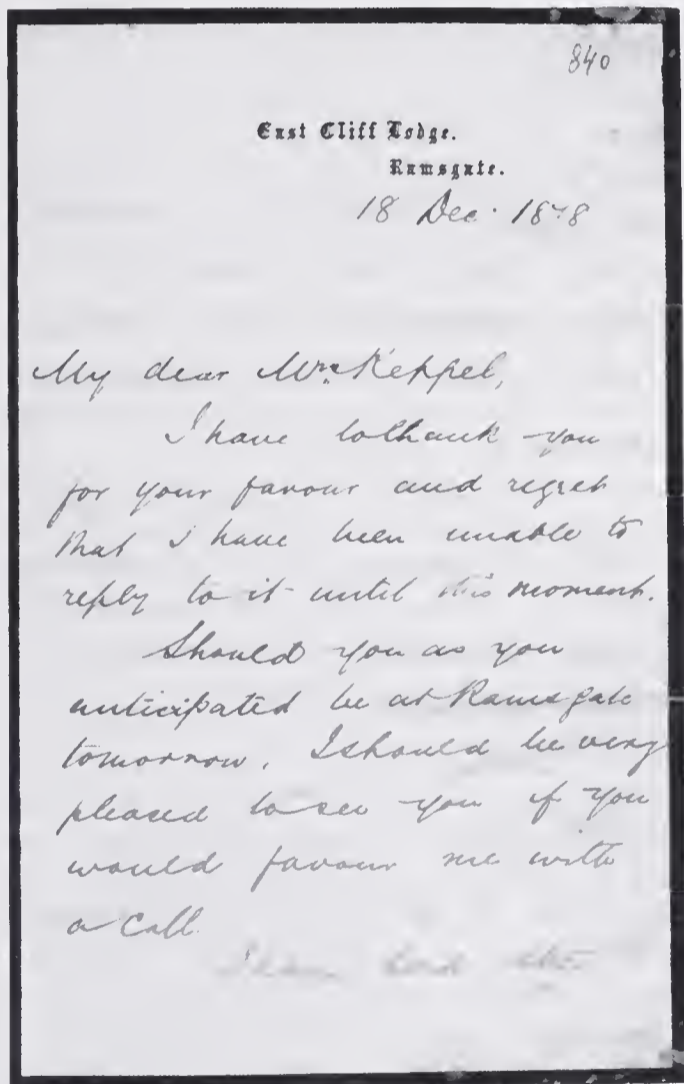 840
East Cliff Lodge.
Ramsgate.
18 Dec. 1878
My dear Mrs. Keppel,
I have to thank you
for your favour and regret
that I have been unable to
reply to it until this moment.
Should you as you
anticipated be at Ramsgate
tomorrow, I should be very
pleased to see you if you
would favour me with
a call.